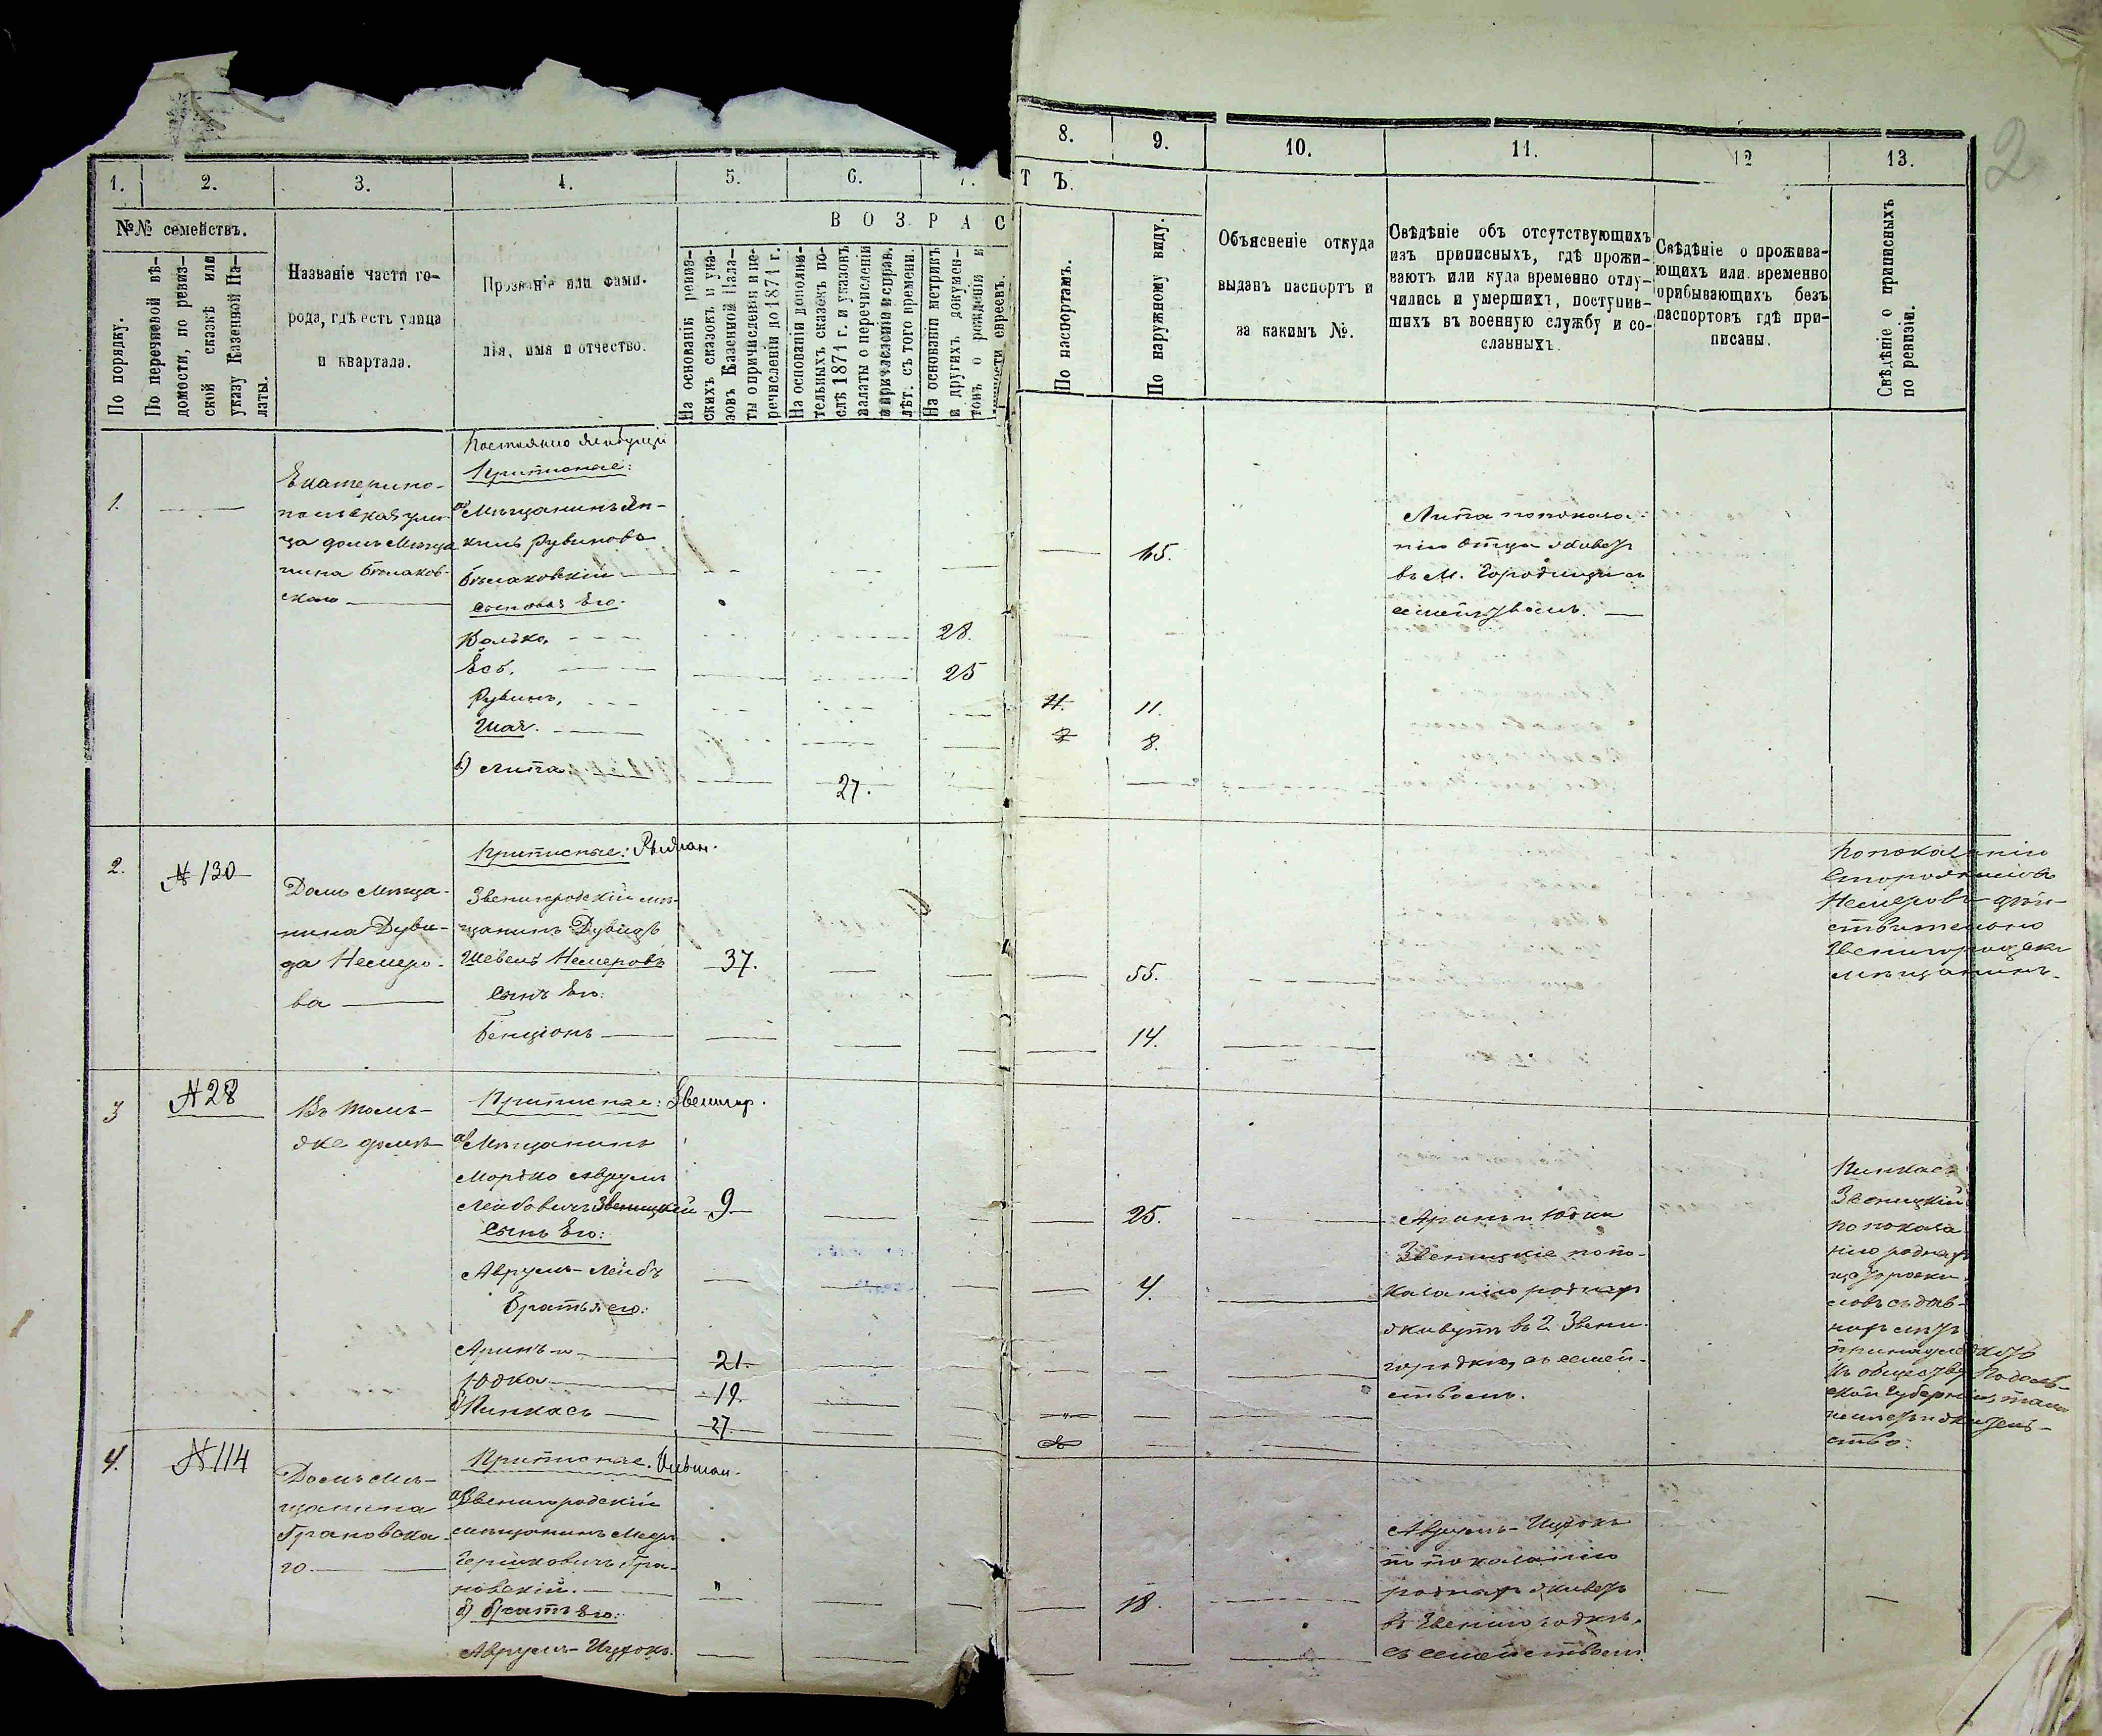 1.
2.
3.
4.
5.
6.
7.
8.
9.
10.
11.
12
13.
2
№№ семействъ.
По порядку.
По перечневой вѣ-
домости, по ревиз-
ской сказкѣ или
указу Казенной Па-
латы.
Названіе части го-
рода, гдѣ есть улица
и квартала.
Прозваніе или фами-
лія, имя и отчество.
ВОЗРАС
Т Ъ.
На основаніи ревиз-
скихъ сказокъ и ука-
зовъ Казенной Пала-
ты о причисленіи и пе-
речисленіи до 1871 г.
На основаніи дополни-
тельныхъ сказокъ по-
слѣ 1871 г. и указовъ
палаты о перечисленіи
и причисленіи и справ.
лѣт. съ того времени.
На основаніи метрикъ
и другихъ докумен-
товъ о рожденіи и
евреевъ.
По паспортамъ.
По наружному виду.
Объясненіе откуда
выданъ паспортъ и
за какимъ №.
Свѣдѣніе объ отсутствующихъ
изъ приписныхъ, гдѣ прожи-
ваютъ или куда временно отлу-
чились и умершихъ, поступив-
шихъ въ военную службу и со-
сланныхъ.
Свѣдѣніе о прожива-
ющихъ или временно
прибывающихъ безъ
паспортовъ гдѣ при-
писаны.
Свѣдѣніе о приписныхъ
по ревизіи.
1.
Екатерино-
польская ули-
ца домъ Мѣща
нина Бѣлаков-
скаго
Постоянно живущіе
Приписные:
а) Мѣщанинъ Ян-
кель Рувиновъ
Бѣлаковскій
65.
сыновья Его:
Волько, 28.
Есь. 25
Рувинъ, 11.
Шая. 8.
б) Липа 27.
Липа по показа-
нію отца живетъ
въ М. Городищи съ
семействомъ.
2.
№ 130
Домъ мѣща-
нина Дуви-
да Немиро-
ва
Приписные:
Звенигородскій мѣ-
щанинъ Дувидъ
Шевель Немеровъ 37. 55.
Сынъ Его:
Бенціонъ 14.
По показанію
Немеровъ дѣй-
ствительно
Звенигородскій
мѣщанинъ.
3
№ 28
Въ томъ-
же домѣ
Приписные: Звенигор.
а) Мѣщанинъ
Мордко Аврум
Лейбовичъ Звеницкій 9 25.
Сынъ Его:
Аврумъ-Лейбъ 4.
Братья его:
Аринъ и 21.
Юдка 19.
б) Пинкасъ 27.
Аринъ и Юдка
Звеницкіе по по-
казанію родныхъ
живутъ въ г. Звени-
городкѣ, съ семей-
ствомъ.
Пинкасъ
Звеницкій
по показа
нію родныхъ
принадлежитъ
къ обществу Подоль-
ской Губерніи, тамъ
4.
№ 114
Домъ Мѣ-
щанина
Грановска-
го
Приписные.
а) Звенигородскій
мѣщанинъ
Гершковичъ Гра-
новскій. 18
б) братъ Его:
Аврумъ-Ицхокъ.
Аврумъ-Ицхокъ
по показанію
родныхъ живетъ
въ Звенигородкѣ,
съ семействомъ